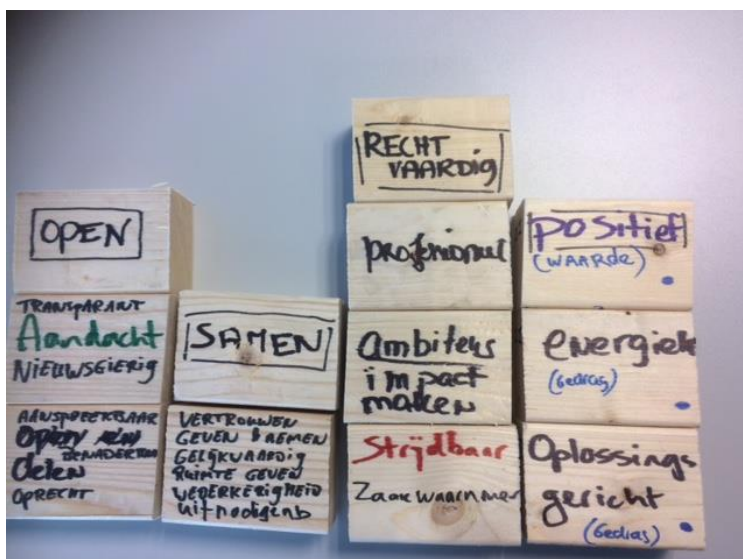 OPEN
TRANSPARANT
Aandacht
NIEUWSGIERIG
AANSPREEKBAAR
Open
BENADERBAAR
delen
OPRECHT
SAMEN
VERTROUWEN
GEVEN & NEMEN
GELIJKWAARDIG
RUIMTE GEVEN
WEDERKERIGHEID
uitnodigend
RECHT
VAARDIG
professioneel
ambitieus
impact
maken
Strijdbaar
Zaakwaarnemer
positief
(WAARDE)
energiek
(Gedrag)
Oplossings
gericht
(Gedrag)